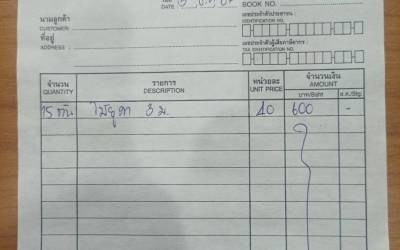 DATE
BOOK NO.
นามลูกค้า
CUSTOMER
เลขประจำตัวประชาชน
IDENTIFICATION NO.
ที่อยู่
ADDRESS
เลขประจำตัวผู้เสียภาษีอากร
TAX IDENTIFICATION NO.
จำนวน รายการ หน่วยละ จำนวนเงิน
QUANTITY DESCRIPTION UNIT PRICE AMOUNT
บาท/Baht ส.ต./Stg.
15 3 ม. 40 600 -